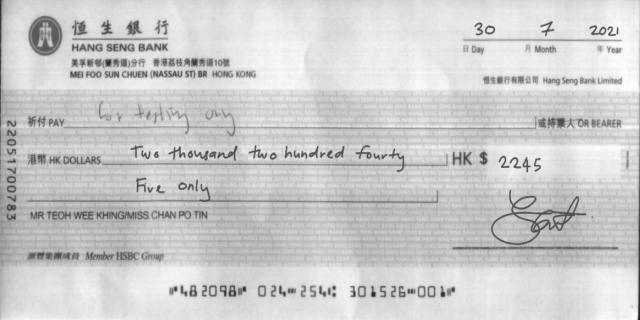 恒生銀行
HANG SENG BANK
美孚新邨(蘭秀道)分行 香港荔枝角蘭秀道10號
MEI FOO SUN CHUEN (NASSAU ST) BR HONG KONG
30 7 2021
日 Day 月 Month 年 Year
恒生銀行有限公司 Hang Seng Bank Limited
祈付 PAY For testing only 或持票人 OR BEARER
港幣 HK DOLLARS Two thousand two hundred fourty HK $ 2245
Five only
MR TEOH WEE KHING/MISS CHAN PO TIN
滙豐集團成員 Member HSBC Group
22051700783
⑈482098⑈ 024⑉254⑆ 301526⑉001⑈